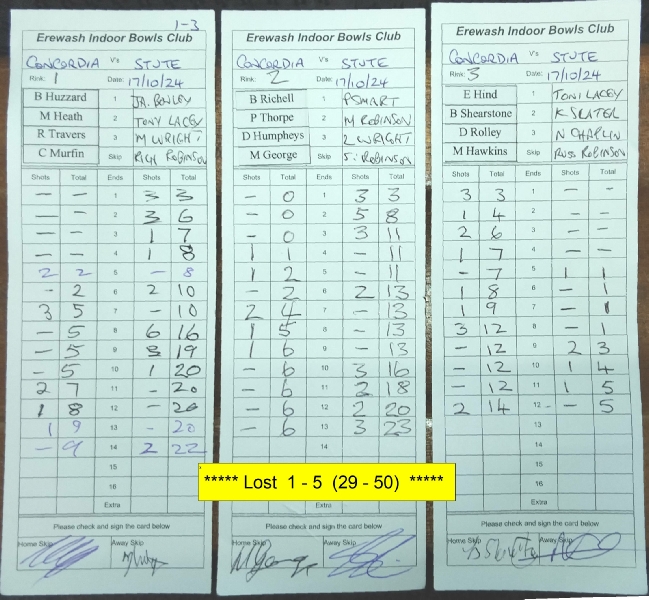 1-3
Erewash Indoor Bowls Club
CONCORDIA V's STUTE
Rink: 1 Date: 17/10/24
B Huzzard 1 JA. BOWLEY
M Heath 2 TONY LACEY
R Travers 3 M WRIGHT
C Murfin Skip RICH ROBINSON
Shots Total Ends Shots Total
— — 1 3 3
— — 2 3 6
— — 3 1 7
— — 4 1 8
2 2 5 — 8
— 2 6 2 10
3 5 7 — 10
— 5 8 6 16
— 5 9 3 19
— 5 10 1 20
2 7 11 — 20
1 8 12 — 20
1 9 13 — 20
— 9 14 2 22
15
16
Extra
Please check and sign the card below
Home Skip Away Skip
Erewash Indoor Bowls Club
CONCORDIA V's STUTE
Rink: 2 Date: 17/10/24
B Richell 1 P SMART
P Thorpe 2 M ROBINSON
D Humpheys 3 L WRIGHT
M George Skip S. ROBINSON
Shots Total Ends Shots Total
— 0 1 3 3
— 0 2 5 8
— 0 3 3 11
1 1 4 — 11
1 2 5 — 11
— 2 6 2 13
2 4 7 — 13
1 5 8 — 13
1 6 9 — 13
— 6 10 3 16
— 6 11 2 18
— 6 12 2 20
— 6 13 3 23
14
Please check and sign the card below
Home Skip Away Skip
Erewash Indoor Bowls Club
CONCORDIA V's STUTE
Rink: 3 Date: 17/10/24
E Hind 1 TONI LACEY
B Shearstone 2 K SLATER
D Rolley 3 N CHAPLIN
M Hawkins Skip RUSS ROBINSON
Shots Total Ends Shots Total
3 3 1 — —
1 4 2 — —
2 6 3 — —
1 7 4 — —
— 7 5 1 1
1 8 6 — 1
1 9 7 — 1
3 12 8 — 1
— 12 9 2 3
— 12 10 1 4
— 12 11 1 5
2 14 12 — 5
13
14
15
16
Extra
Please check and sign the card below
Home Skip Away Skip
***** Lost 1 - 5 (29 - 50) *****